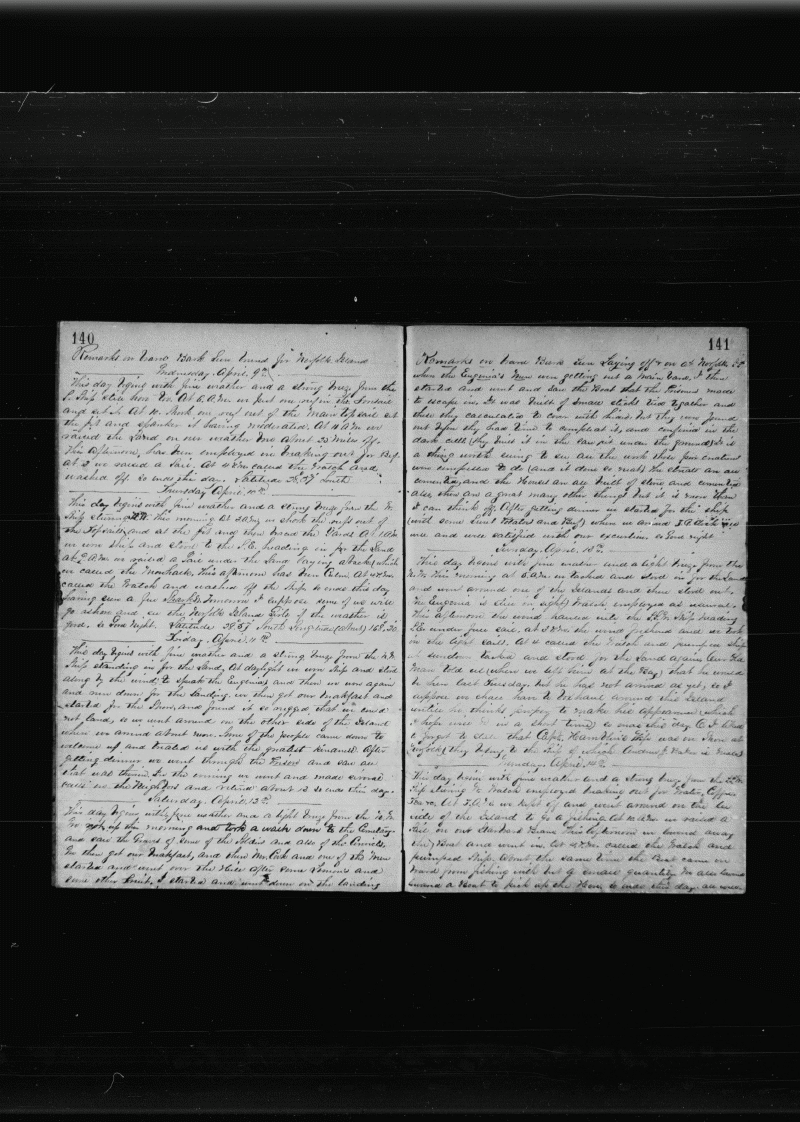 140
Remarks on board Bark Sun bound for Norfolk Island
Wednesday April 9th
This day begins with fine weather and a strong breeze from the
S. Ship steering NW. At 6 A.M. we put one reef in the Foresail
and set it. At 10 shook one reef out of the Main topsail set
the jib and spanker it having moderated. At 11 A.M. we
raised the Land on our weather bow about 35 miles off.
This afternoon, has been employed in breaking out for Beef.
at 3 we raised a Sail. At 4 P.M. called the Watch and
washed off. So ends this day. Latitude South
Thursday April 10th
This day begins with fine weather and a strong breeze from the W.
Ship steering N.W. This morning at 3 A.M. we shook the reefs out of
the Topsails, and set the jib and then braced the Yards. At
we wore ship and stood to the S.E. heading in for the Land
at 9 A.M. we raised a Sail under the Land laying aback, which
we called the Mowhalk. This afternoon has been calm. At 4 P.M.
called the Watch and washed off the Ship. So ends this day
having seen a few Sharks. Tomorrow I suppose some of we will
go ashore and see the Norfolk Island Exile if the weather is
good. So Good Night. Latitude South Longitude (about) 168.20
Friday April 11th
This day begins with fine weather and a strong breeze from the
Ship standing in for the Land, At daylight we wore Ship and stood
along by the wind to speak the Eugenia and then we wore again
and run down for the landing. we then got our breakfast and
started for the Town, and found it so rugged that we could
not land, so we went around on the other side of the Island
where we arrived about noon. Some of the people came down to
welcome us and treated us with the greatest kindness. After
getting dinner we went through the Prison and saw all
that was there. In the evening we went and made some
calls on the Neighbors and retired about 12 So ends this day.
Saturday April 12th
This day begins with fine weather and a light breeze from the N.W.
We got up this morning and took a walk down to the Cemetery
and saw the Graves of some of the Soldiers and also of the Convicts.
We then got our breakfast, and then Mr. Cook and one of the Men
started and went over the Hills after some Lemons and
some other fruit. I started and went down on the landing
141
Remarks on board Bark Sun Laying off & on at Norfolk Id
where the Eugenia's Men were getting out a Main Yard, I then
started and went and saw the Boat that the Prisoners made
to escape in. It was built of small sticks tied together and
these they calculated to cover with hides but they were found
out before they had time to complete it, and confined in the
dark cells (they built it in the saw pit under the ground) It is
a thing worth seeing to see all the work these poor creatures
were compelled to do (and it done so neat) The streets are all
cemented and the Houses are all built of stone and cemented
also, there are a great many other things but it is more than
I can think of. After getting dinner we started for the ship
(with some Sweet Potatoes and Beef) where we arrived
and were satisfied with our excursion. So Good night
Sunday April 13th
This day begins with fine weather and a light breeze from the
N.W. This morning at 6 A.M. we tacked and stood in for the Land
and went around one of the Islands and then stood out.
The Eugenia is still in sight, Watch employed as usual.
This afternoon the wind hauled into the Ship heading
under full sail, at 3 P.M. the wind freshened and we took
in the light sails. At 4 called the Watch and pumped ship
at sundown tacked and stood for the Land again. Our Old
Man told us (when we left him at the Bay) that he would
be here last Tuesday but he has not arrived as yet, so I
suppose we shall have to lie around this Island
until he thinks proper to make his appearance, (which
I hope will be in a short time) so ends this day.
I forgot to state that Capt. Hamblin's Wife was on Shore at
Norfolk (they belong to the Ship of which Andrew J. Baker is Mate)
Monday April 14th
This day begins with fine weather and a strong breeze from the
Ship steering Watch employed breaking out for Water, Coffee
Tea &c. we kept off and went around on the lee
side of the Island to go a fishing, at 10 A.M. we raised a
Sail on our Starboard Beam. This afternoon we lowered away
the Boat and went in, at 4 P.M. called the Watch and
pumped Ship, about the same time the Boat came on
board from fishing with but a small quantity. We also
lowered a Boat to pick up the so ends this day all well